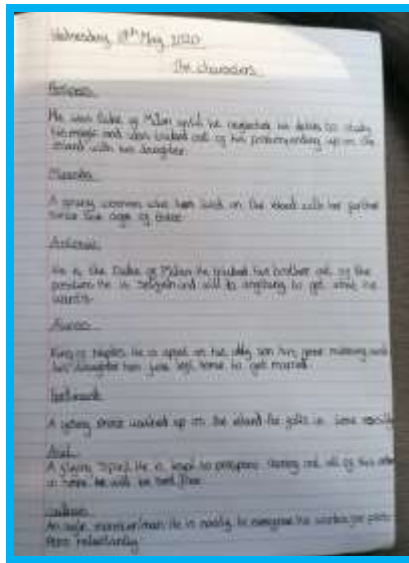 Wednesday 13th May 2020
The characters
Prospero
He was Duke of Milan until he neglected his duties to study
his magic and was kicked out of his position, ending up on the
island with his daughter.
Miranda
A young woman who has lived on the island with her father
since the age of three
Antonio
He is the Duke of Milan. He kicked his brother out of the
position. He is selfish and will do anything to get what he
wants.
Alonso
King of Naples. He is upset as his only son has gone missing and
his daughter has just left home to get married.
Ferdinand
A young prince washed up on the island he falls in love
Ariel
A flying spirit. He is loyal to prospero carrying out all of his
in hope he will be set free.
Caliban
An man. He is nasty to everyone he works for
reluctantly